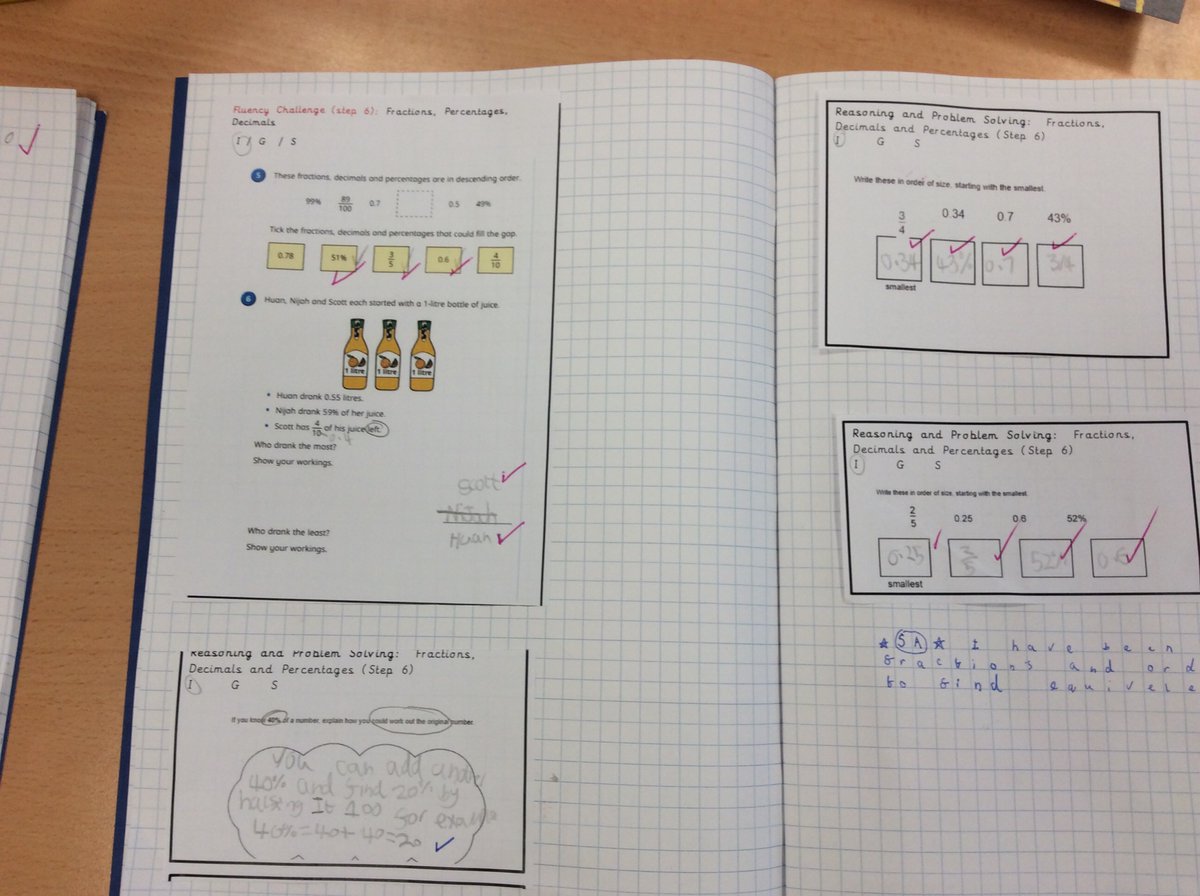 Fluency Challenge (step 6): Fractions, Percentages,
Decimals
I / G / S
5 These fractions, decimals and percentages are in descending order.
99% 89/100 0.7 0.5 49%
Tick the fractions, decimals and percentages that could fill the gap.
0.78 51% 3/5 0.6 4/10
6 Huan, Nijah and Scott each started with a 1-litre bottle of juice.
1 litre 1 litre 1 litre
• Huan drank 0.55 litres.
• Nijah drank 59% of her juice.
• Scott has 4/10 of his juice left.
0.4
Who drank the most?
Show your workings.
Scott
Nijah
Who drank the least?
Huan
Show your workings.
Reasoning and Problem Solving: Fractions,
Decimals and Percentages (Step 6)
I G S
If you know 40% of a number, explain how you could work out the original number.
You can add another
40% and find 20% by
halfing It 100 for example
40% = 40 + 40 = 20
Reasoning and Problem Solving: Fractions,
Decimals and Percentages (Step 6)
I G S
Write these in order of size, starting with the smallest.
3/4 0.34 0.7 43%
0.34 43% 0.7 3/4
smallest
Reasoning and Problem Solving: Fractions,
Decimals and Percentages (Step 6)
I G S
Write these in order of size, starting with the smallest.
2/5 0.25 0.6 52%
0.25 52% 0.6
smallest
SA I have been
fractions and ord
to find equivele